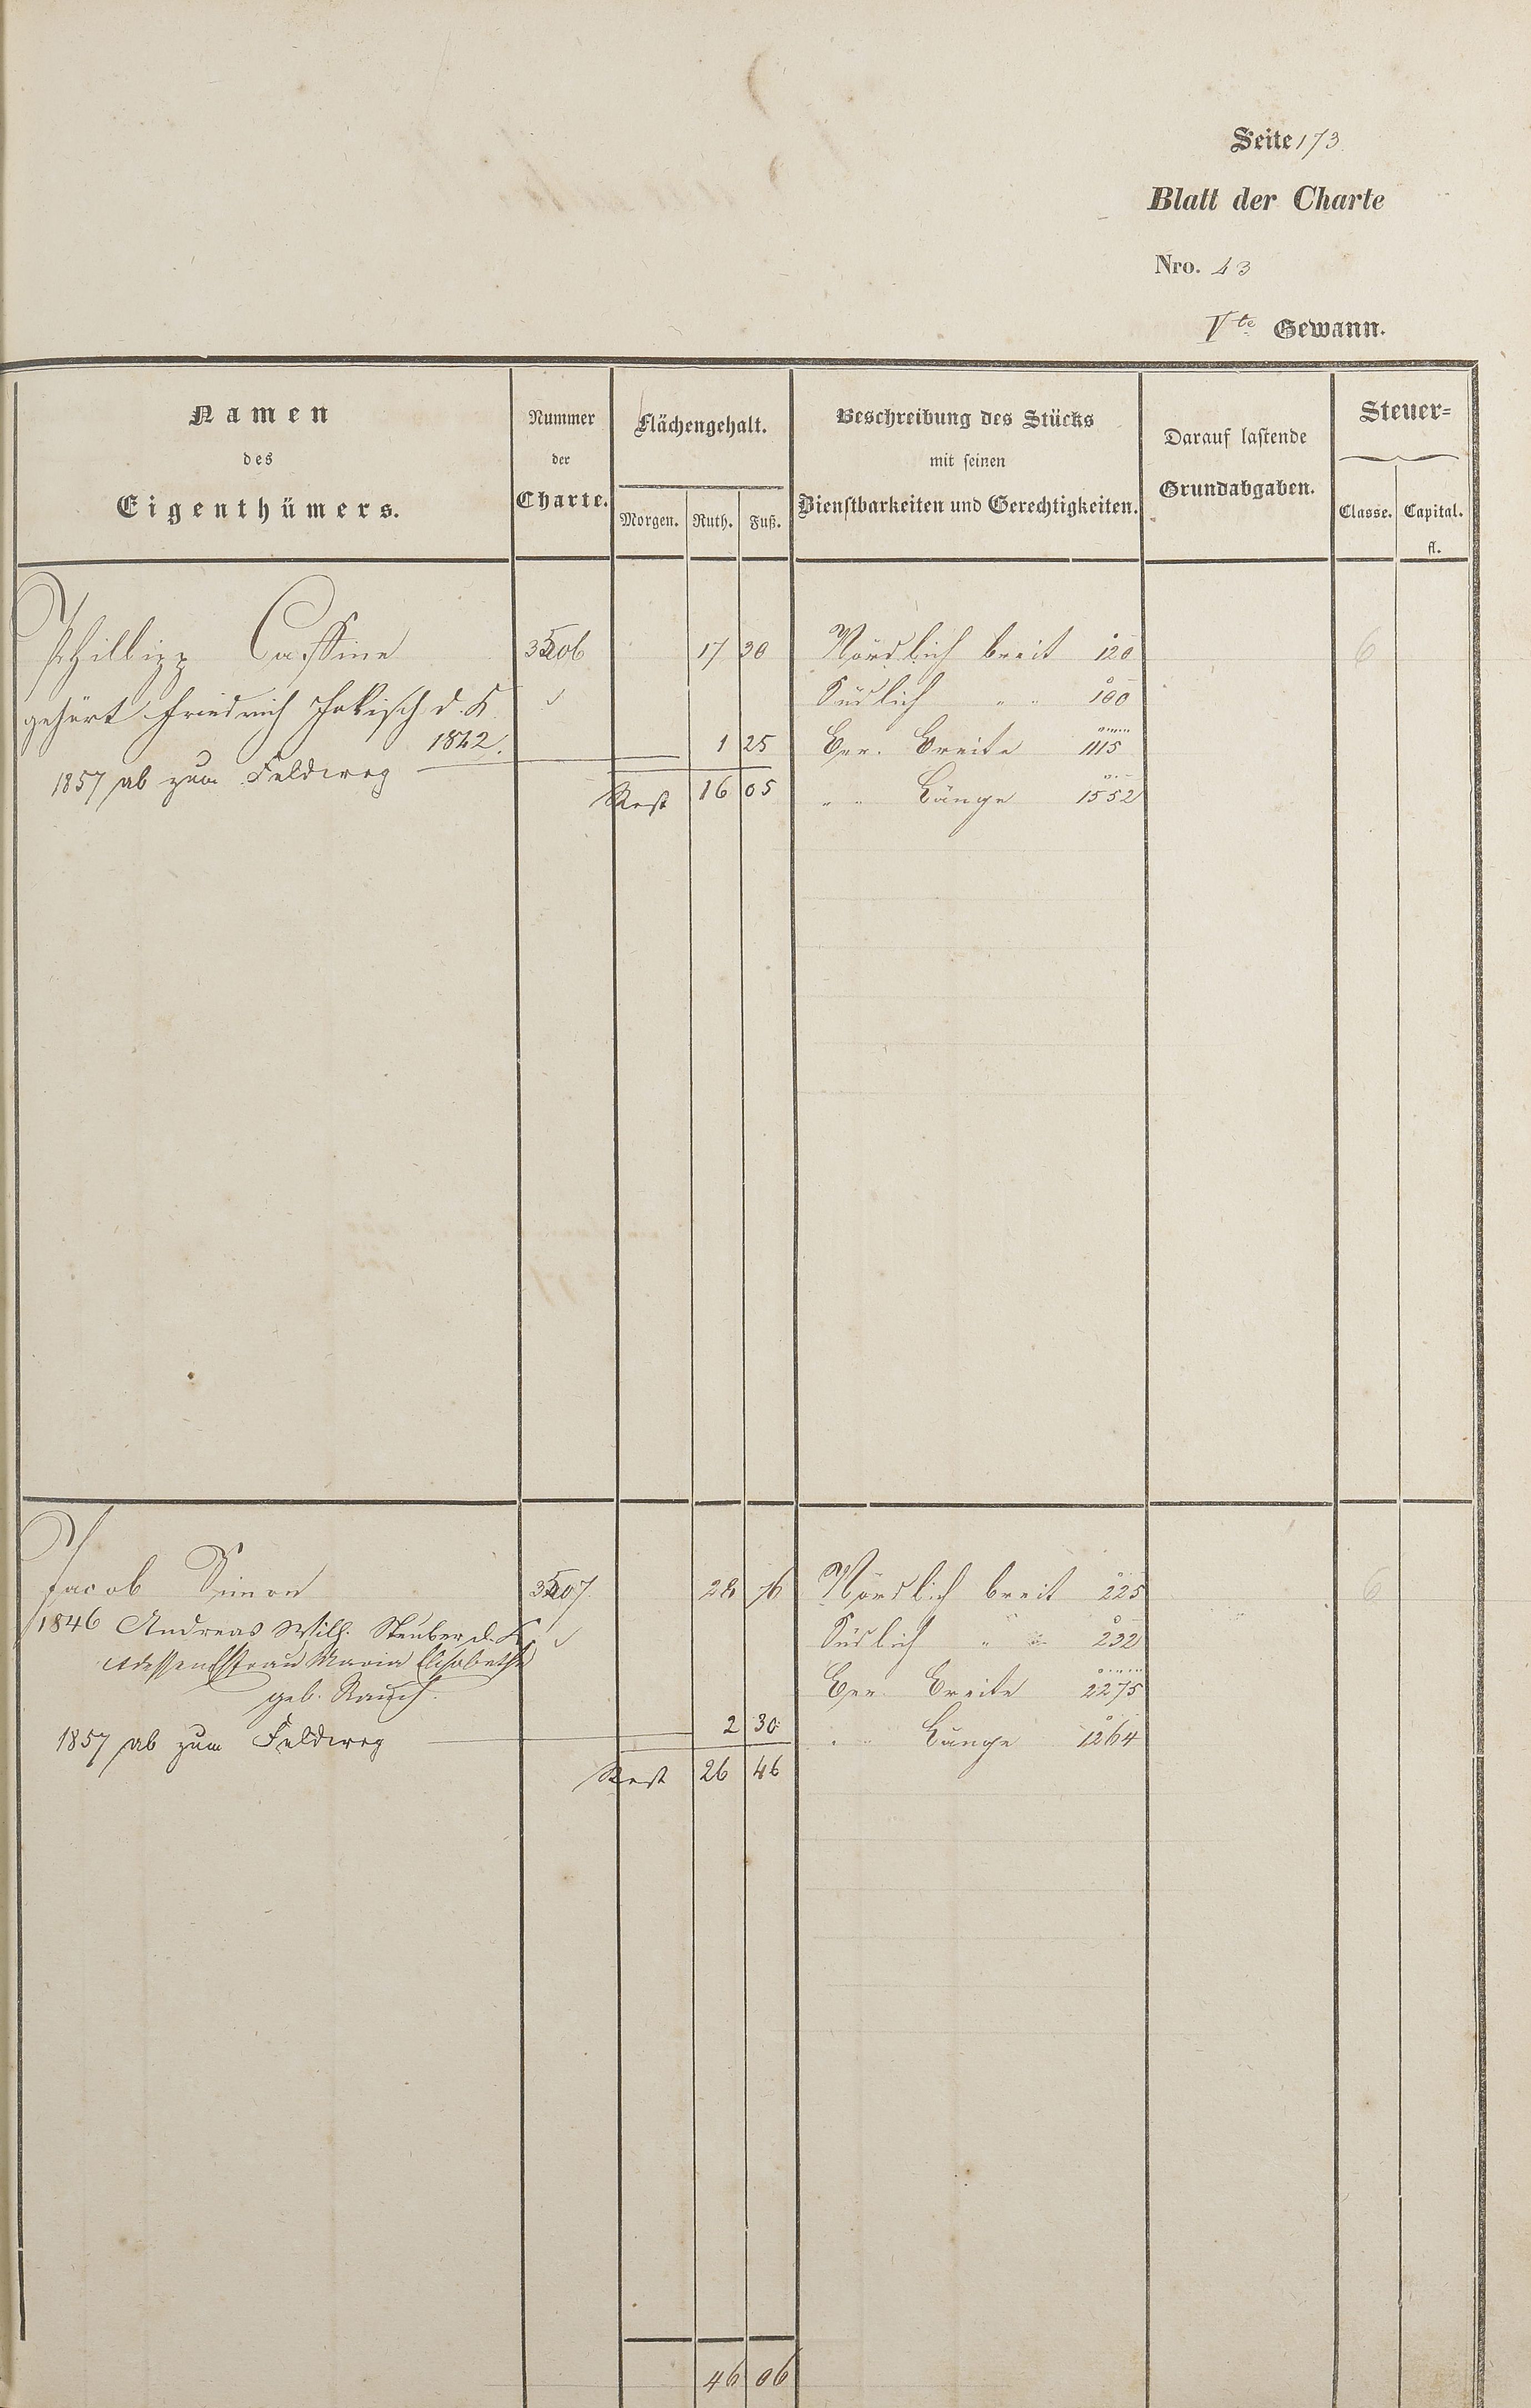 Seite 173
Blatt der Charte
Nro. 43
Vte Gewann.
Namen des Eigenthümers.
Nummer der Charte.
Flächengehalt.
Morgen. Ruth. Fuß.
Beschreibung des Stücks mit seinen Dienstbarkeiten und Gerechtigkeiten.
Darauf lastende Grundabgaben.
Steuer=
Classe. Capital. fl.
Phillipp 17 30 Nördlich breit 120 6
gehört Friedrich d. K. Südlich " " 100
1842. 1 25 Ger. Breite 1115
1857 ab zum Feldweg
Rest 16 05 " " Länge 1552
Jacob Simon 28 76 Nördlich breit 225 6
1846 Andreas Will. Steuber d. K. Südlich " " 232
dessen Ehefrau Maria Elisabetha
geb. Rauch. Ger. Breite 2275
1857 ab zum Feldweg 2 30 " " Länge 1264
Rest 26 46
46 06